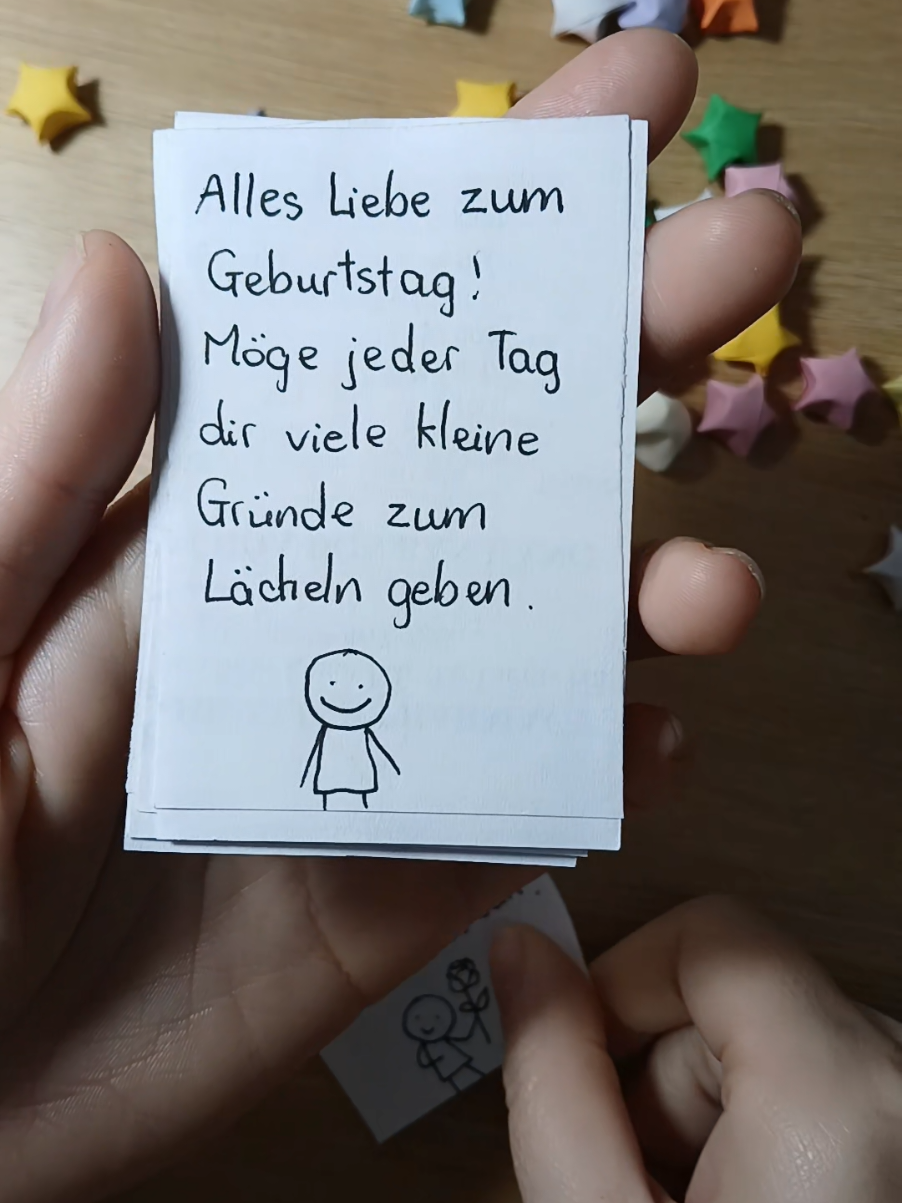 Alles Liebe zum
Geburtstag!
Möge jeder Tag
dir viele kleine
Gründe zum
Lächeln geben.